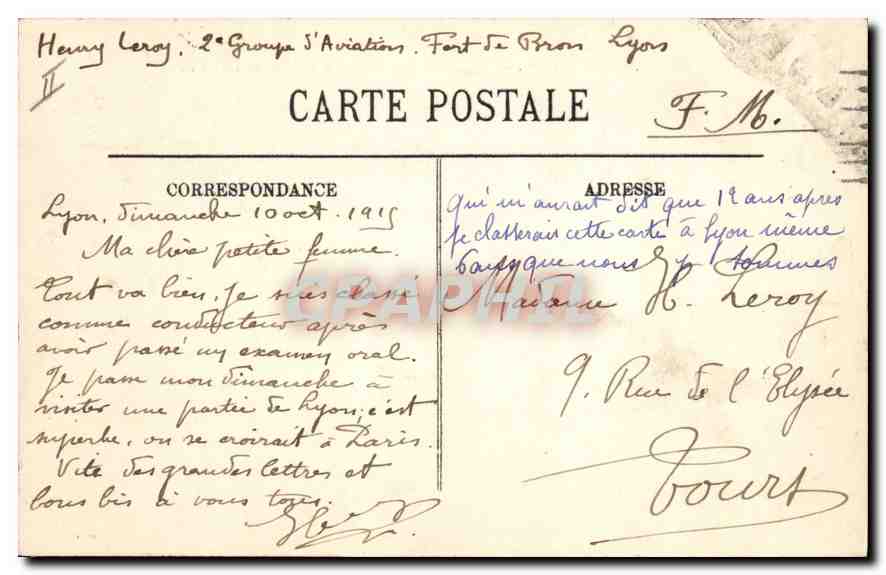 Henry Leroy. 2e Groupe d'Aviation. Fort de Bron Lyon
II
CARTE POSTALE
F. M.
CORRESPONDANCE
Lyon, dimanche 10 oct. 1915
Ma chère petite femme.
Tout va bien. Je suis classé
comme conducteur après
avoir passé un examen oral.
Je passe mon dimanche à
visiter une partie de Lyon, c'est
superbe, on se croirait à Paris.
Vite des grandes lettres et
bons bis à vous tous.
ADRESSE
Qui m'aurait dit que 12 ans après
je classerais cette carte à Lyon même
que nous y sommes
Madame H. Leroy
9. Rue de l'Elysée
Tours
CPAPHIL